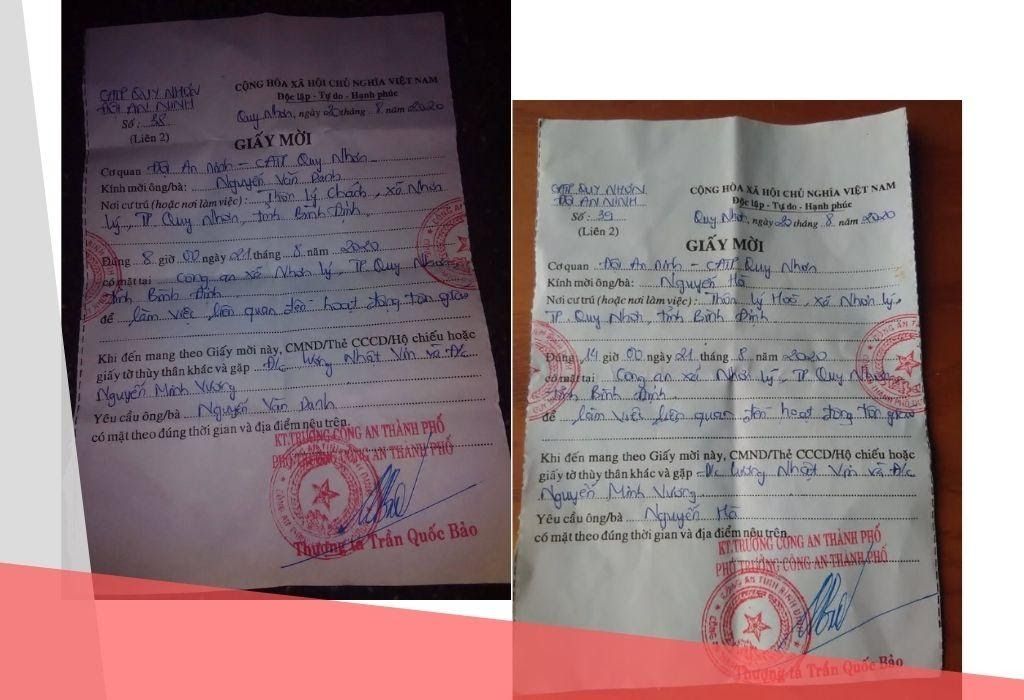 CATP QUY NHƠN
ĐỘI AN NINH
Số: 38
(Liên 2)
CỘNG HÒA XÃ HỘI CHỦ NGHĨA VIỆT NAM
Độc lập - Tự do - Hạnh phúc
Quy Nhơn, ngày 20 tháng 8 năm 2020
GIẤY MỜI
Cơ quan Đội An ninh - CATP Quy Nhơn
Kính mời ông/bà: Nguyễn Văn Danh
Nơi cư trú (hoặc nơi làm việc): Thôn Lý Chánh, xã Nhơn
Lý, TP Quy Nhơn, tỉnh Bình Định.
Đúng 8 giờ 00 ngày 21 tháng 8 năm 2020
có mặt tại Công an xã Nhơn Lý, TP Quy Nhơn,
tỉnh Bình Định
để làm việc liên quan đến hoạt động tôn giáo
Khi đến mang theo Giấy mời này, CMND/Thẻ CCCD/Hộ chiếu hoặc
giấy tờ tùy thân khác và gặp Đ/c Lương Nhật Vin và Đ/c
Nguyễn Minh Vương
Yêu cầu ông/bà Nguyễn Văn Danh
có mặt theo đúng thời gian và địa điểm nêu trên.
KT.TRƯỞNG CÔNG AN THÀNH PHỐ
PHÓ TRƯỞNG CÔNG AN THÀNH PHỐ
Thượng tá Trần Quốc Bảo
CATP QUY NHƠN
ĐỘI AN NINH
Số: 39
(Liên 2)
CỘNG HÒA XÃ HỘI CHỦ NGHĨA VIỆT NAM
Độc lập - Tự do - Hạnh phúc
Quy Nhơn, ngày 20 tháng 8 năm 2020
GIẤY MỜI
Cơ quan Đội An ninh - CATP Quy Nhơn
Kính mời ông/bà: Nguyễn Hà
Nơi cư trú (hoặc nơi làm việc): Thôn Lý Hoà, xã Nhơn Lý,
TP Quy Nhơn, tỉnh Bình Định
Đúng 14 giờ 00 ngày 21 tháng 8 năm 2020
có mặt tại Công an xã Nhơn Lý, TP Quy Nhơn,
tỉnh Bình Định
để làm việc liên quan đến hoạt động tôn giáo
Khi đến mang theo Giấy mời này, CMND/Thẻ CCCD/Hộ chiếu hoặc
giấy tờ tùy thân khác và gặp Đ/c Lương Nhật Vin và Đ/c
Nguyễn Minh Vương
Yêu cầu ông/bà Nguyễn Hà
có mặt theo đúng thời gian và địa điểm nêu trên.
KT.TRƯỞNG CÔNG AN THÀNH PHỐ
PHÓ TRƯỞNG CÔNG AN THÀNH PHỐ
CÔNG AN TỈNH BÌNH ĐỊNH
Thượng tá Trần Quốc Bảo